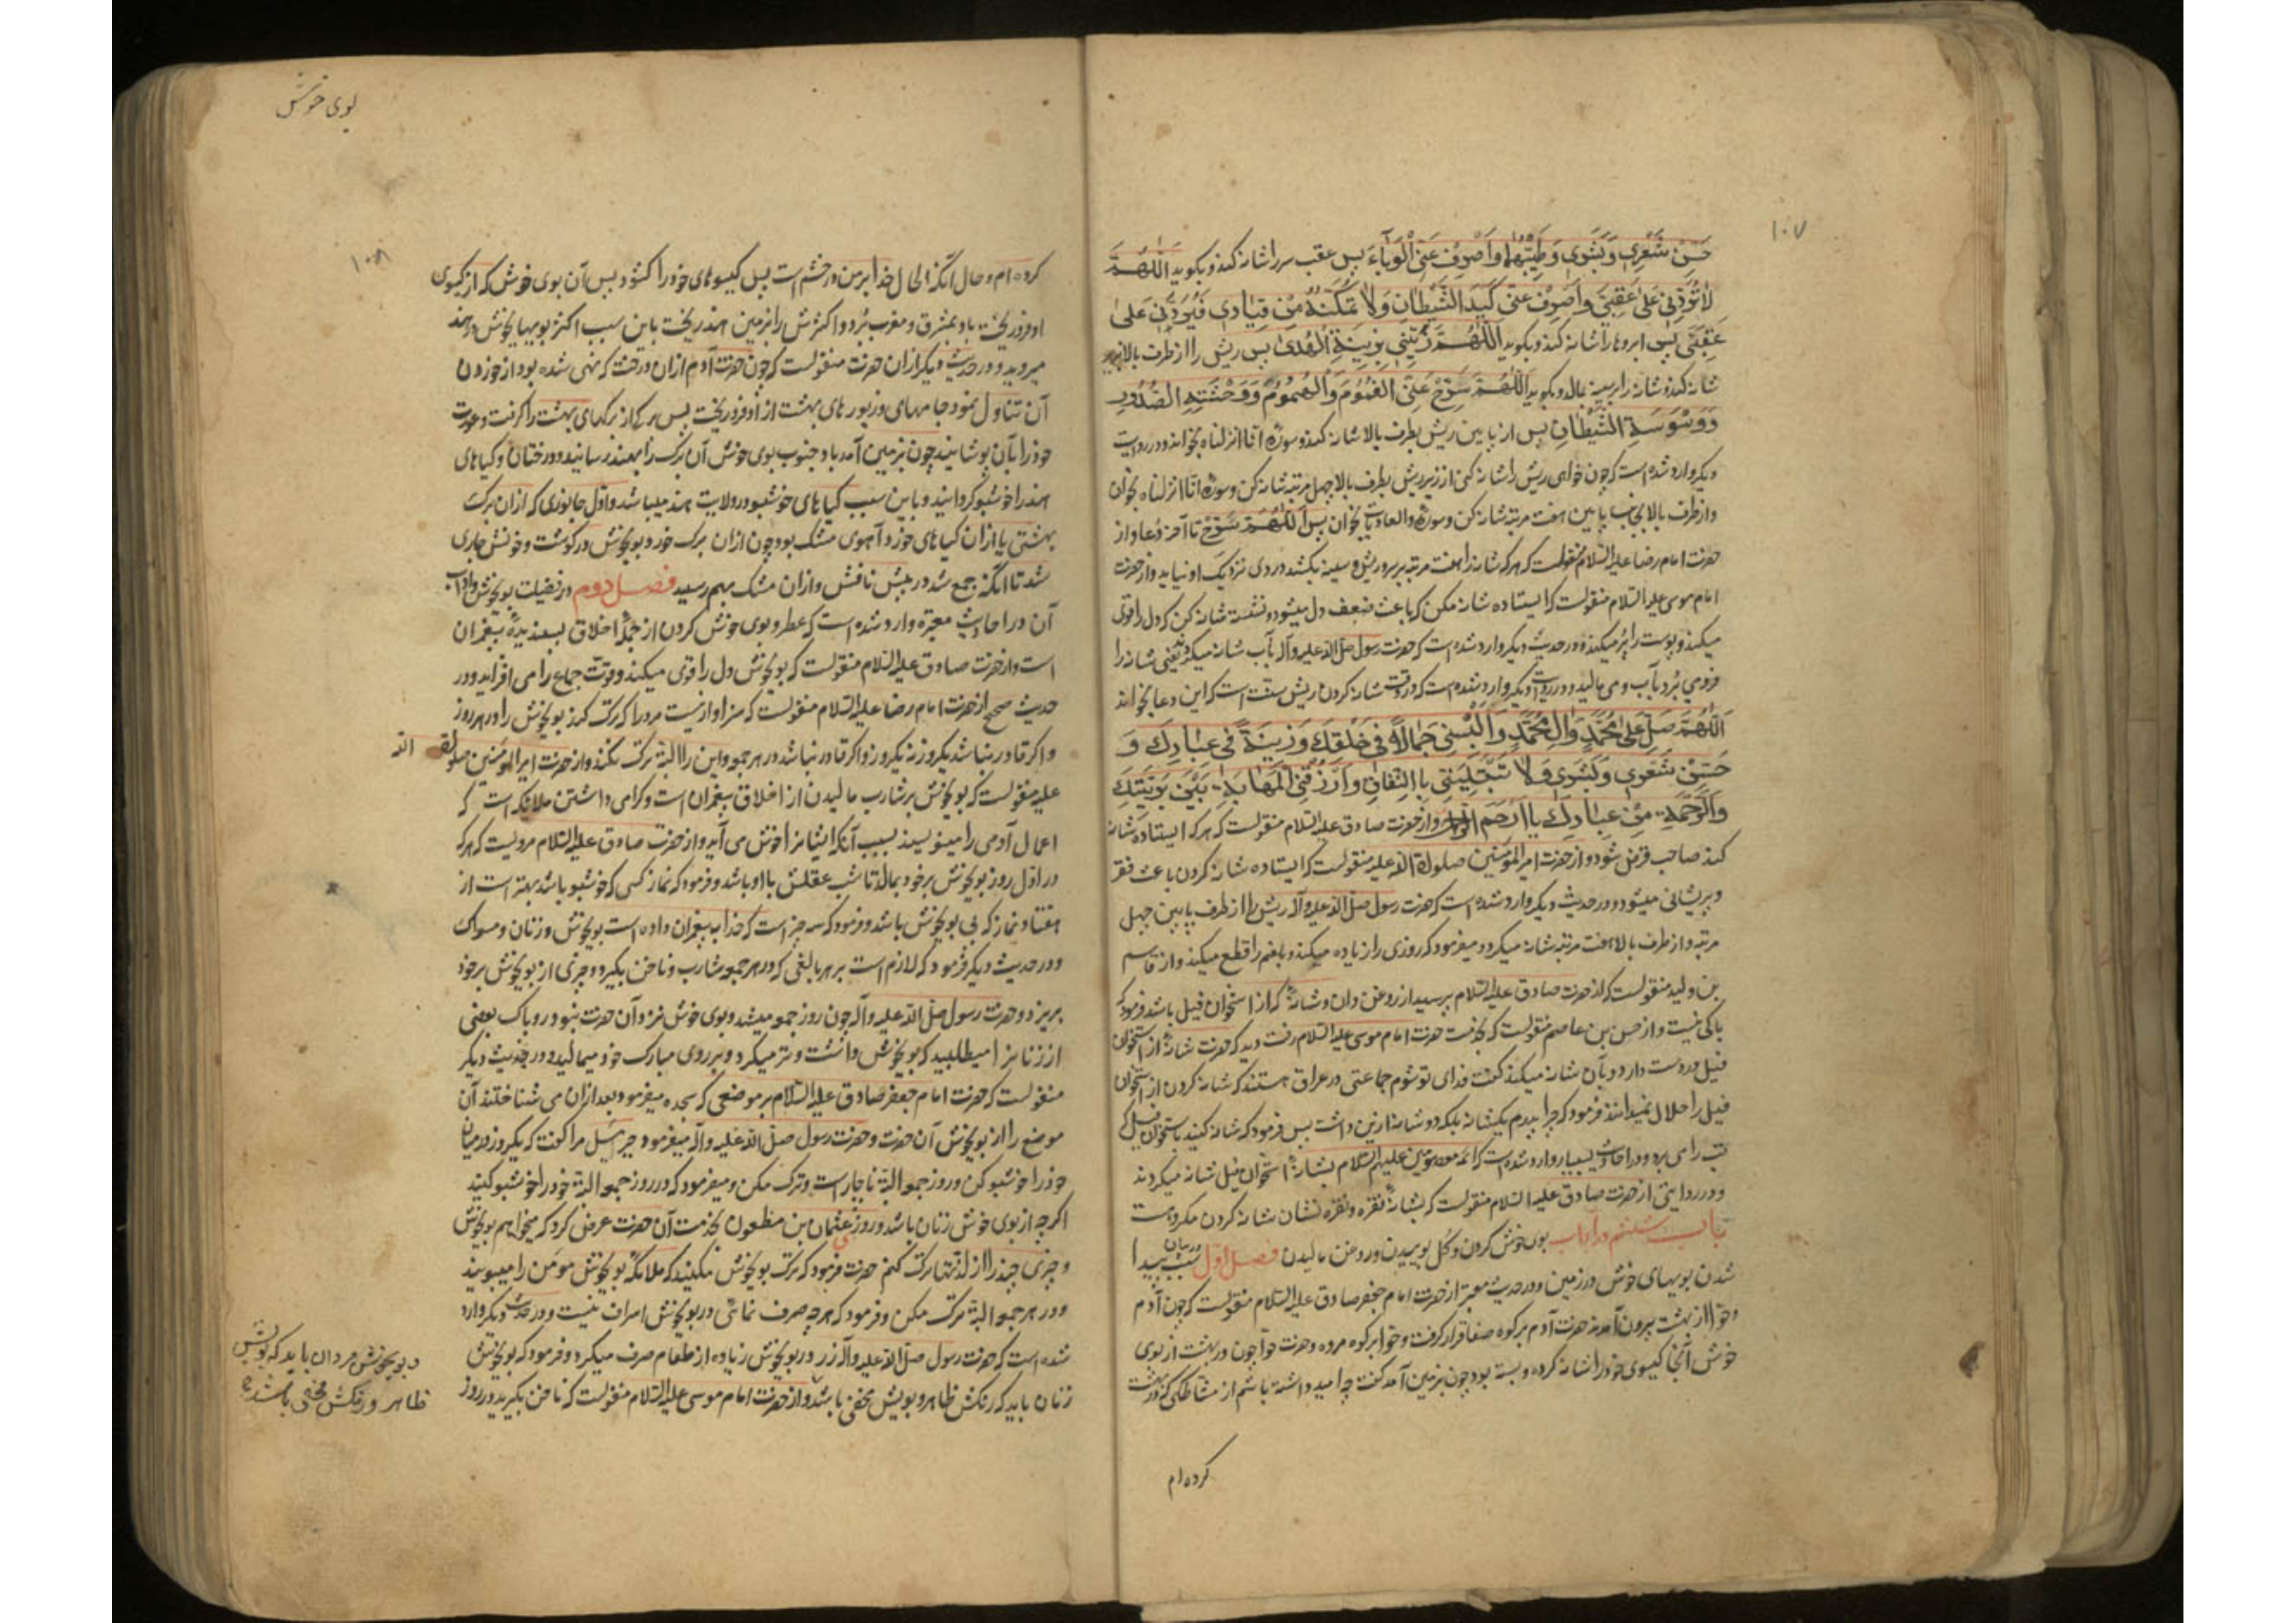 ۱۰۷
حَسِّنْ شَعْری وَبَشَری وَطَیِّبْهُما وَاصْرِفْ عَنِّی الْوَبآءَ پس عقب سر را شانه کند و بکوید اللّهُمَّ
لا تَرُدَّنی عَلی عَقِبَیَّ وَاصْرِفْ عَنّی کَیْدَ الشَّیْطانِ وَلا تُمَکِّنْهُ مِنْ قِیادی فَیَرُدَّنی عَلی
عَقِبَیَّ پس ابروها را شانه کند و بکوید اللّهُمَّ زَیِّنّی بِزینَةِ الْهُدی پس ریش را از طرف بالا بزیر
شانه کند و شانه را بر سینه مالد و بکوید اللّهُمَّ سَرِّحْ عَنِّی الغُمُومَ وَالْهُمُومَ وَوَحْشَتِهِ الصُّدُورِ
وَوَسْوَسَةِ الشَّیْطانِ پس از پایین ریش بطرف بالا شانه کند و سوره انا انزلناه بخواند و در روایت
دیکر وارد شده است که چون خواهی ریش را شانه کنی از زیر ریش بطرف بالا چهل مرتبه شانه کن و سوره انا انزلناه بخوان
و از طرف بالا بجانب پایین هفت مرتبه شانه کن و سوره والعادیات بخوان پس اللّهُمَّ سَرِّحْ تا آخر دعا و از
حضرت امام رضا علیه السّلام منقولست که هر که شانه را هفت مرتبه بر سر و ریش و سینه بکشد دردی نزدیک او نیاید و از حضرت
امام موسی علیه السّلام منقولست که ایستاده شانه مکن که باعث ضعف دل میشود و نشسته شانه کن که دل را قوی
میکند و پوست را پُر میکند و در حدیث دیکر وارد شده است که حضرت رسول صلّی الله علیه وآله بآب شانه میکرد یعنی شانه را
فرو می بُرد بآب و می مالید و در روایت دیکر وارد شده است که در وقت شانه کردن ریش سنّت است که این دعا بخواند
اَللّهُمَّ صَلِّ عَلی مُحَمَّدٍ وَآلِ مُحَمَّدٍ وَاَلْبِسْنی جَمالاً فی خَلْقِکَ وَزینَةً فی عِبادِکَ وَ
حَسِّنْ شَعْری وَبَشَری وَلا تَبْتَلِیَنی بِالنِّفاقِ وَارْزُقْنِی الْمَهابَةَ بَیْنَ بَرِیَّتِکَ
وَالرَّحْمَةَ مِنْ عِبادِکَ یا اَرْحَمَ الرّاحمین و از حضرت صادق علیه السّلام منقولست که هر که ایستاده شانه
کند صاحب قرض شود و از حضرت امیر المؤمنین صلوات الله علیه منقولست که ایستاده شانه کردن باعث فقر
و پریشانی میشود و در حدیث دیکر وارد شده است که حضرت رسول صلّی الله علیه وآله ریش را از طرف پایین چهل
مرتبه و از طرف بالا هفت مرتبه شانه میکرد و میفرمود که روزی را زیاده میکند و بلغم را قطع میکند و از قاسم
بن ولید منقولست که از حضرت صادق علیه السّلام پرسید از روغن دان و شانهٔ که از استخوان فیل باشد فرمود که
باکی نیست و از حسن بن عاصم منقولست که بخدمت حضرت امام موسی علیه السّلام رفت دید که حضرت شانهٔ از استخوان
فیل در دست دارد و بآن شانه میکند کفت فدای تو شوم جماعتی در عراق هستند که شانه کردن از استخوان
فیل را حلال نمیدانند فرمود که چرا پدرم یکشانه بلکه دو شانه ازین داشت پس فرمود که شانه کنید باستخوان فیل که
تب را می برد و در احادیث بسیار وارد شده است که ائمه معصومین علیهم السّلام بشانهٔ استخوان فیل شانه میکردند
و در روایتی از حضرت صادق علیه السّلام منقولست که بشانهٔ نقره و نقره نشان شانه کردن مکروهست
باب ششم در آداب بوی خوش کردن و کل بوییدن و روغن مالیدن فصل اوّل در بیان سبب پیدا
شدن بویهای خوش در زمین و در حدیث معتبر از حضرت امام جعفر صادق علیه السّلام منقولست که چون آدم
و حوّا از بهشت بیرون آمدند حضرت آدم بر کوه صفا قرار کرفت و حوّا بر کوه مروه و حضرت حوّا چون در بهشت از بوی
خوش آنجا کیسوی خود را شانه کرده و بسته بود چون بزمین آمد کفت چه امید داشته باشم از مشّاطکی که در بهشت
کرده ام
بوی خوش
۱۰۸
کرده ام و حال آنکه الحال خدا بر من در خشم است پس کیسوهای خود را کشود پس آن بوی خوش که از کیسوی
او فرو ریخت باد بمشرق و مغرب بُرد و اکثرش را بزمین هند ریخت باین سبب اکثر بویهای خوش در هند
میروید و در حدیث دیکر از آن حضرت منقولست که چون حضرت آدم از آن درخت که نهی شده بود از خوردن
آن تناول نمود جامهای و زیورهای بهشت از او فرو ریخت پس برکی از برکهای بهشت را کرفت و عورت
خود را بآن پوشانید چون بزمین آمد باد جنوب بوی خوش آن برک را بهند رسانید و درختان و کیاهای
هند را خوشبو کردانید و باین سبب کیاهای خوشبو در ولایت هند میباشد و اوّل جانوری که از آن برک
بهشتی یا از آن کیاهای خورد آهوی مشک بود چون از آن برک خورد بویخوش در کوشت و خونش جاری
شد تا آنکه جمع شد در پیش نافش و از آن مشک بهم رسید فصل دوم در فضیلت بویخوش و آداب
آن در احادیث معتبره وارد شده است که عطر و بوی خوش کردن از جملهٔ اخلاق پسندیدهٔ پیغمبران
است و از حضرت صادق علیه السّلام منقولست که بویخوش دل را قوی میکند و قوّت جماع را می افزاید و در
حدیث صحیح از حضرت امام رضا علیه السّلام منقولست که سزاوار نیست مرد را که ترک کند بویخوش را در هر روز
و اکر قادر نباشد یکروز نه یکروز و اکر قادر نباشد در هر جمعه و این را البتّه ترک نکند و از حضرت امیر المؤمنین صلوات الله
علیه منقولست که بویخوش بر شارب مالیدن از اخلاق پیغمبران است و کرامی داشتن ملائکه است که
اعمال آدمی را مینویسند بسبب آنکه ایشانرا خوش می آید و از حضرت صادق علیه السّلام مرویست که هر که
در اوّل روز بویخوش بر خود بمالد تا شب عقلش با او باشد و فرمود که نماز کسی که خوشبو باشد بهتر است از
هفتاد نماز که بی بویخوش باشد و فرمود که سه چیز است که خدا بپیغمبران داده است بویخوش و زنان و مسواک
و در حدیث دیکر فرمود که لازم است بر هر بالغی که در هر جمعه شارب و ناخن بکیرد و چیزی از بویخوش بر خود
بریزد و حضرت رسول صلّی الله علیه وآله چون روز جمعه میشد و بوی خوش نزد آن حضرت نبود روپاک بعضی
از زنانرا میطلبید که بویخوش داشت و تر میکرد و بر روی مبارک خود میمالید و در حدیث دیکر
منقولست که حضرت امام جعفر صادق علیه السّلام بر موضعی که سجده میفرمود بعد از آن می شناختند آن
موضع را از بویخوش آن حضرت و حضرت رسول صلّی الله علیه وآله میفرمود جبرئیل مرا کفت که یکروز در میان
خود را خوشبو کن و روز جمعه البتّه ناچار است و ترک مکن و میفرمود که در روز جمعه البتّه خود را خوشبو کنید
اکرچه از بوی خوش زنان باشد و روزی عثمان بن مظعون بخدمت آن حضرت عرض کرد که میخواهم بویخوش
و چیزی چند را از لذّتها ترک کنم حضرت فرمود که ترک بویخوش مکنید که ملائکه بویخوش مؤمن را میبویند
و در هر جمعه البتّه ترک مکن و فرمود که هر چه صرف نمائی در بویخوش اسراف نیست و در حدیث دیکر وارد
شده است که حضرت رسول صلّی الله علیه وآله زر در بویخوش زیاده از طعام صرف میکرد و فرمود که بویخوش
زنان باید که رنکش ظاهر و بویش مخفی باشد و از حضرت امام موسی علیه السّلام منقولست که ناخن بکیرید در روز
و بویخوش مردان باید که بویش
ظاهر و رنکش مخفی باشد